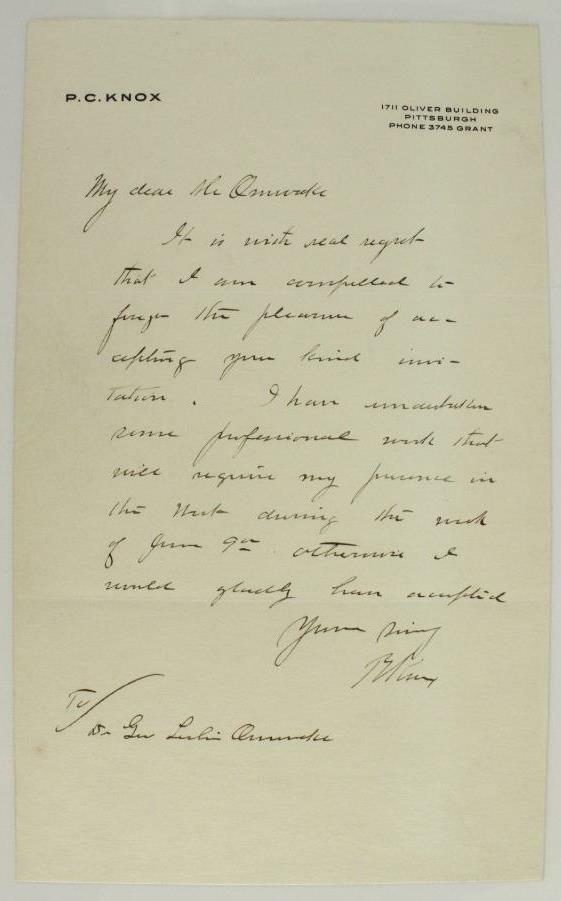 P.C. KNOX
1711 OLIVER BUILDING
PITTSBURGH
PHONE 3745 GRANT
My dear Mr Omwake
It is with real regret
that I am compelled to
forego the pleasure of ac-
cepting your kind invi-
tation. I have undertaken
some professional work that
will require my presence in
the West during the week
of June 9th otherwise I
would gladly have accepted
Yours
PCKnox
To/
Dr Geo Leslie Omwake